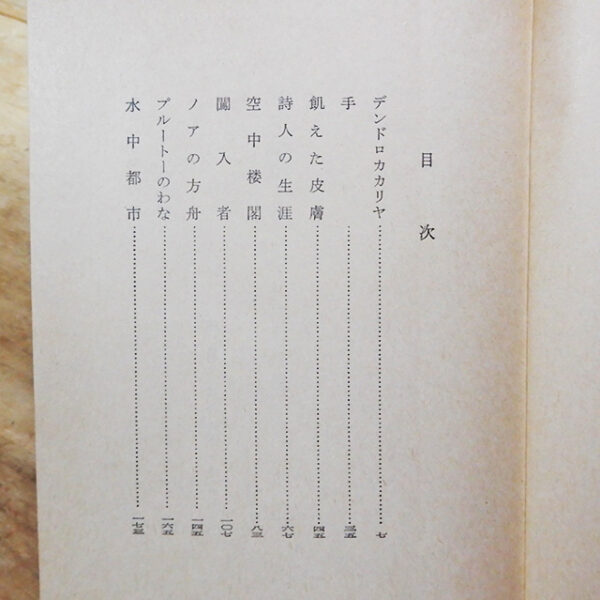 目次
デンドロカカリヤ……七
手……三五
飢えた皮膚……四五
詩人の生涯……六七
空中楼閣……八三
闖入者……一〇七
ノアの方舟……一四五
プルートーのわな……一六五
水中都市……一七三